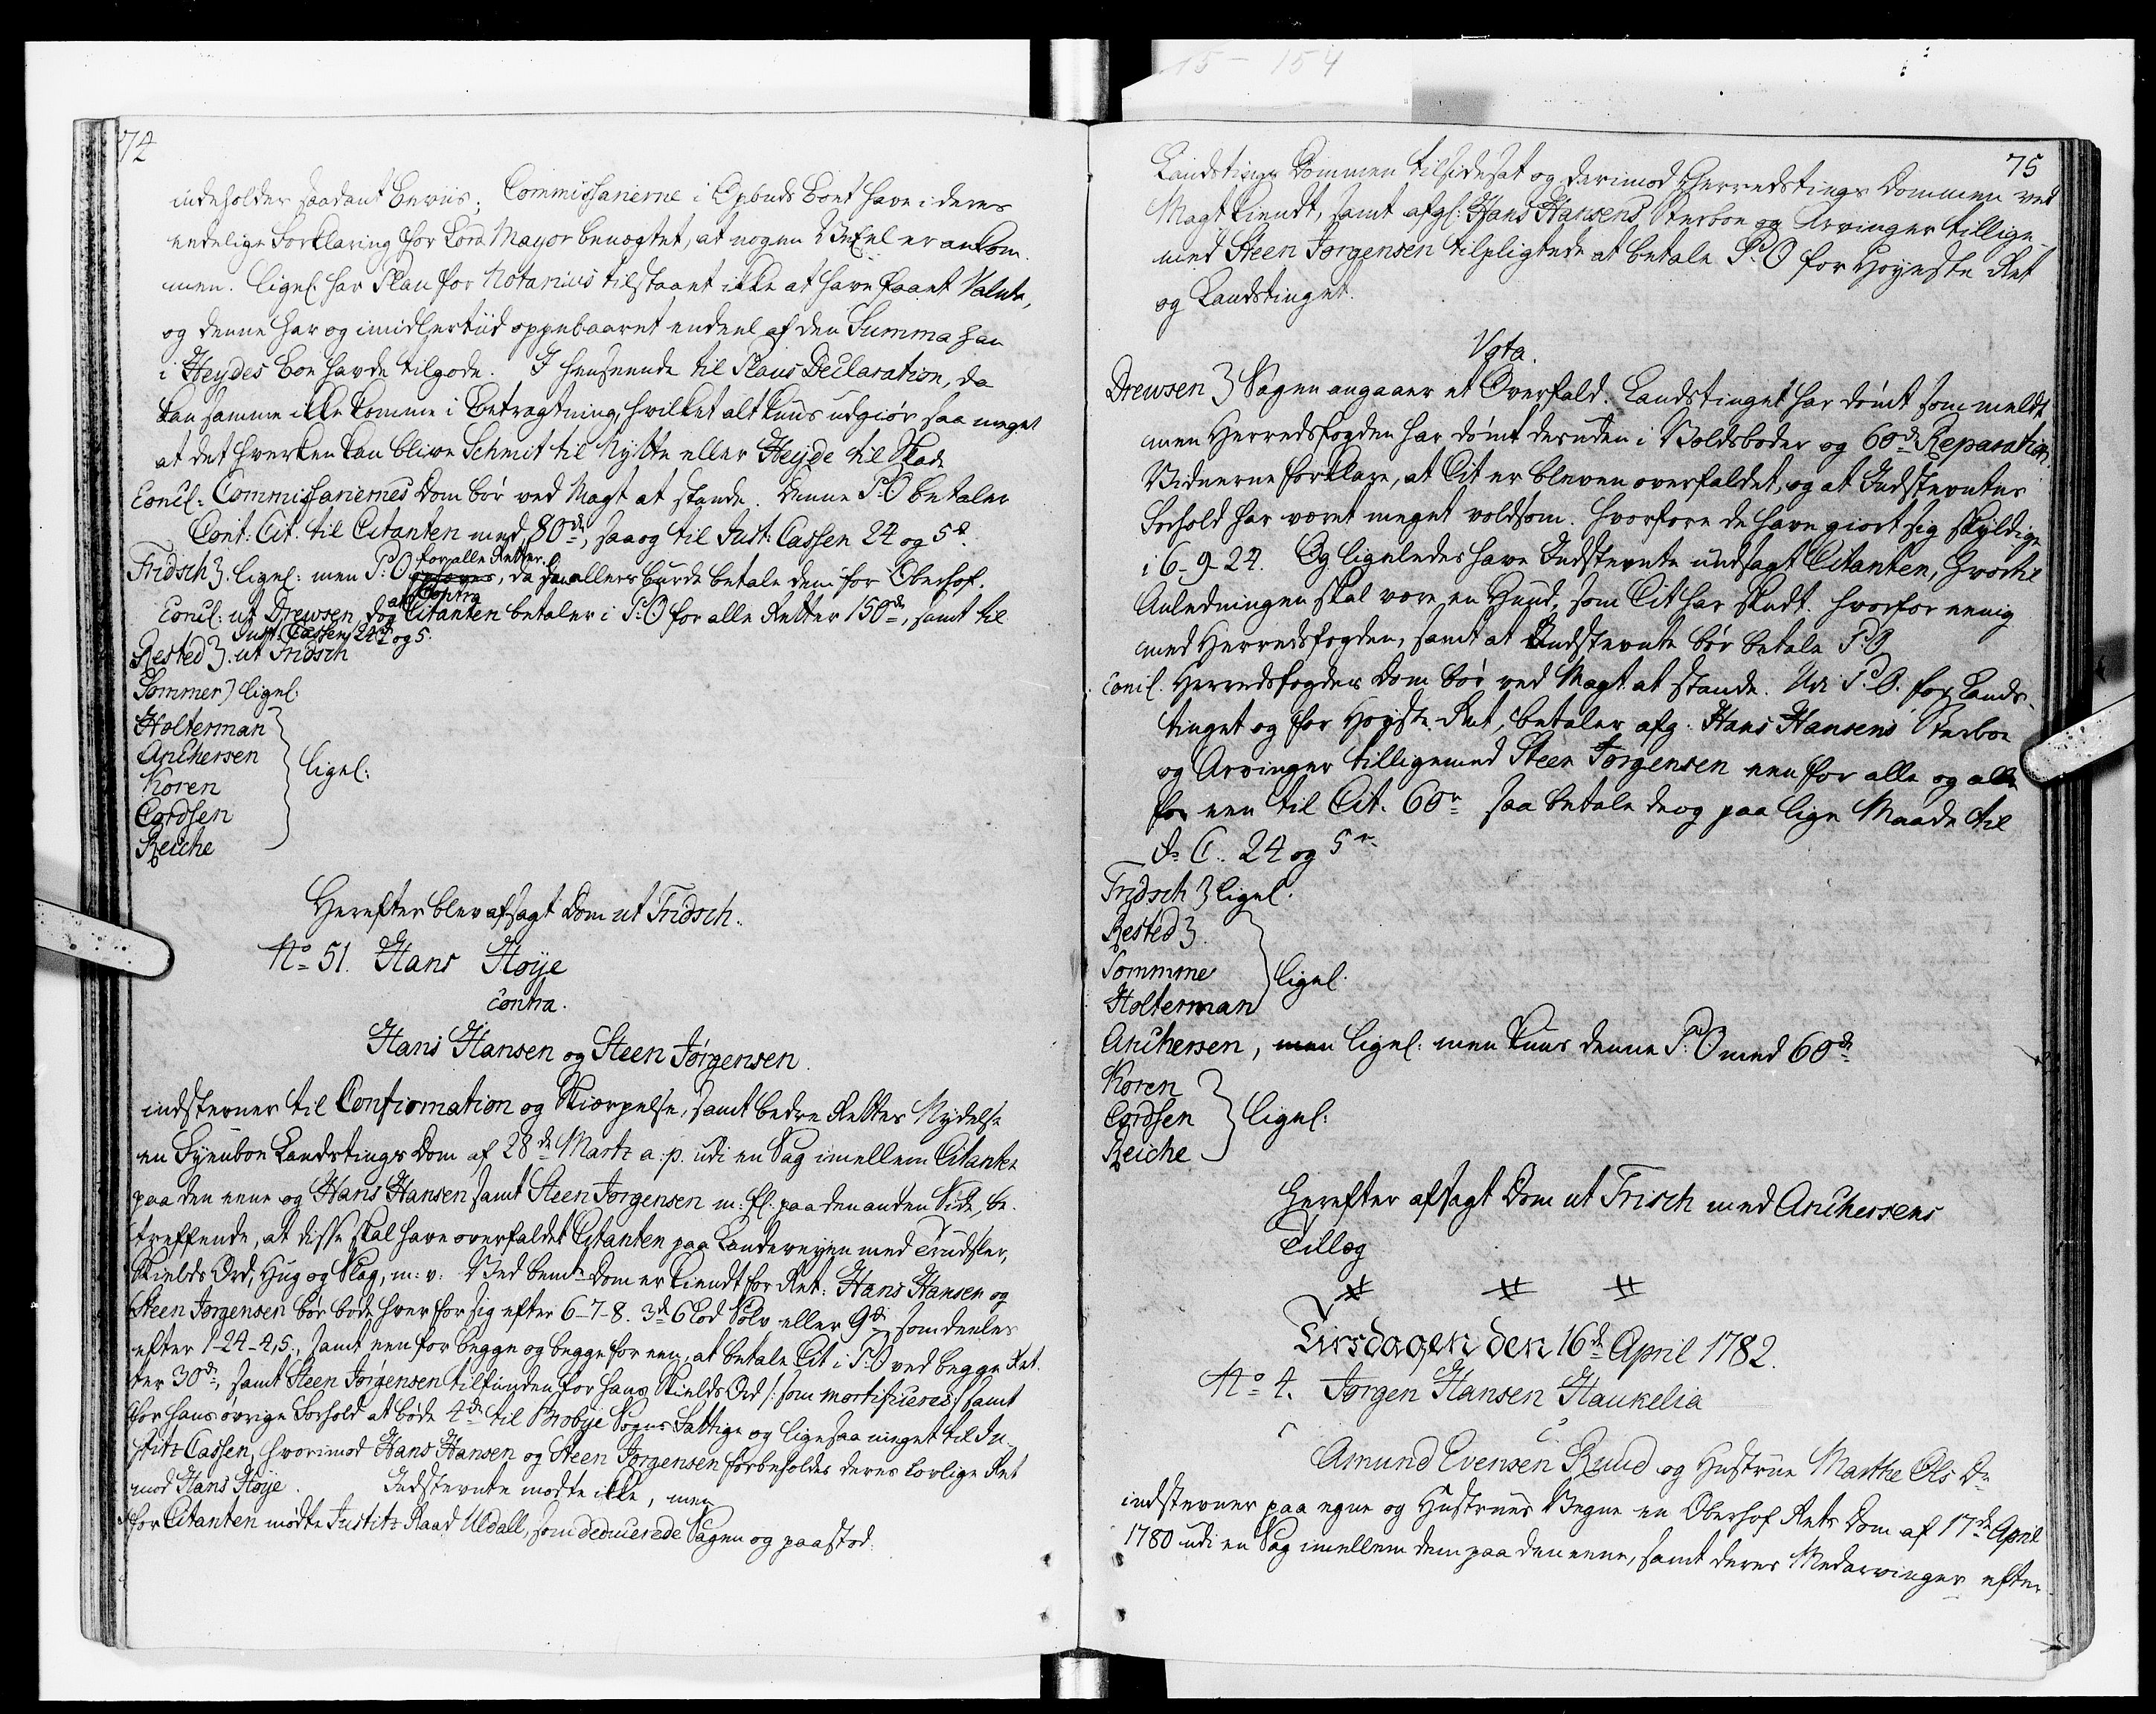 74
indeholder saadant beviis; Commissarierne i Opbuds boet have i deres
endelige Forklaring for Lord Mayor benægtet, at nogen Vexel er ankom-
men. ligel: har Plau for Notarius tilstaaet ikke at have faaet Valuta,
og denne har og imidlertiid oppebaaret endeel af den Summa han
i Heydes boe havde tilgode. I henseende til Plaus Declaration, da
kan samme ikke komme i betragtning, hvilket alt kuns udgiør saa meget
at det hverken kan blive Schmit til Nytte eller Heyde til Skade
Concl: Commissariernes Dom bør ved Magt at stande. Denne P:O betaler
Cont: Cit. til Citanten med 80rd, saa og til Just: Cassen 24 og 5rd.
for alle Retter
Fridsch3. ligel: men P:O ophæves, da han ellers burde betale dem for Oberhof.
at Contra
Concl: ut Drewsen, dog Citanten betaler i P:O for alle Retter 150rd, samt til
Just: Cassen 24 og 5.
Rested3. ut Fridsch
Sommer) ligel:
Holterman
Anchersen
Koren ligel:
Cordsen
Reiche
Herefter blev afsagt Dom ut Fridsch.
No 51. Hans Høije
contra.
Hans Hansen og Steen Jørgensen.
indstevner til Confirmation og Skiærpelse, samt bedre Rettes Nydelse
en Fyenboe Landstings Dom af 28de Marts a: p. udi en Sag imellem Citanten
paa den eene og Hans Hansen samt Steen Jørgensen m: fl. paa den anden Side, be-
treffende, at disse skal have overfaldet Citanten paa Landeveyen med Trudsler,
Skields Ord, Hug og Slag, m: v: Ved bemte Dom er kiendt for Ret: Hans Hansen og
Steen Jørgensen bør bøde hver for sig efter 6-7-8. 3de 6 Lod Sølv eller 9rd som deeles
efter 1-24-4,5., samt een for begge og begge for een, at betale Cit i P:O ved begge Ret-
ter 30rd, samt Steen Jørgensen tilfunden for hans Skields Ord /: som mortificeres :/ samt
for hans øvrige Forhold at bøde 4rd til Brobye Sogns Fattige og ligesaa meget til Ju-
stits Cassen, hvorimod Hans Hansen og Steen Jørgensen forbeholdes deres lovlige Ret
mod Hans Høije. Indstevnte mødte ikke, men
for Citanten mødte Justits Raad Uldall, som deducerede Sagen og paastod:
75
Landstings Dommen tilsidesat og derimod Herredstings Dommen ved
Magt kiendt, samt afg: Hans Hansens Sterboe og Arvinger tillige-
med Steen Jørgensen tilpligtede at betale P:O for Høyeste Ret
og Landstinget.
Vota.
Drewsen3 Sagen angaaer et Overfald. Landstinget har dømt som meldt
men Herredsfogden har dømt desuden i Voldsbøder og 60rd Reparation.
Vidnerne forklare, at Cit er bleven overfaldet, og at Indstevntes
Forhold har været meget voldsom. hvorfore de have giort sig skyldige
i 6-9-24. Og ligeledes have Indstevnte undsagt Citanten, hvortil
Anledningen skal være en Hund, som Cit har skudt. hvorfor eenig
med Herredsfogden, samt at Indstevnte bør betale P:O
Concl. Herredsfogdens Dom bør ved Magt at stande. Udi P.O. for Lands-
tinget og for Høyste Ret, betaler afg. Hans Hansens Sterboe
og Arvinger tilligemed Steen Jørgensen een for alle og alle
for een til Cit. 60r saa betale de og paa lige Maade til
J: C.. 24 og 5r
Fridsch3 ligel.
Rested3.
Sommme ligel.
Holterman
Anchersen, men ligel: men kuns denne P:O med 60rd
Koren
Cordsen ligel:
Reiche
herefter afsagt Dom ut Frisch med Anchersens
Tillæg
Tirsdagen den 16de April 1782.
No 4. Jørgen Hansen Haukelia
c.
Amund Evensen Ruud og Hustrue Marthe Ols Dr
indstevner paa egne og Hustrues Vegne en Oberhof Rets Dom af 17de April
1780 udi en Sag imellem dem paa den eene, samt deres Medarvinger efter